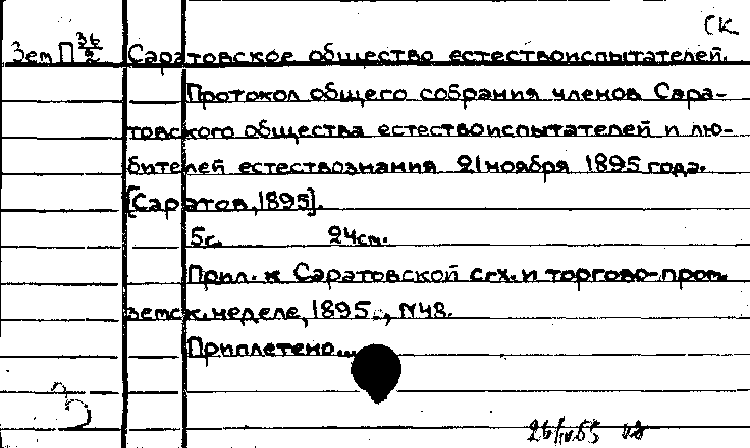 СК
Зем П 36/2 Саратовское общество естествоиспытателей.
Протокол общего собрания членов Сара-
товского общества естествоиспытателей и лю-
бителей естествознания 21 ноября 1895 года.
[Саратов, 1895].
5с. 24см.
Прил. к Саратовской с-х. и торгово-пром.
земск. неделе, 1895., №48.
Приплетено...